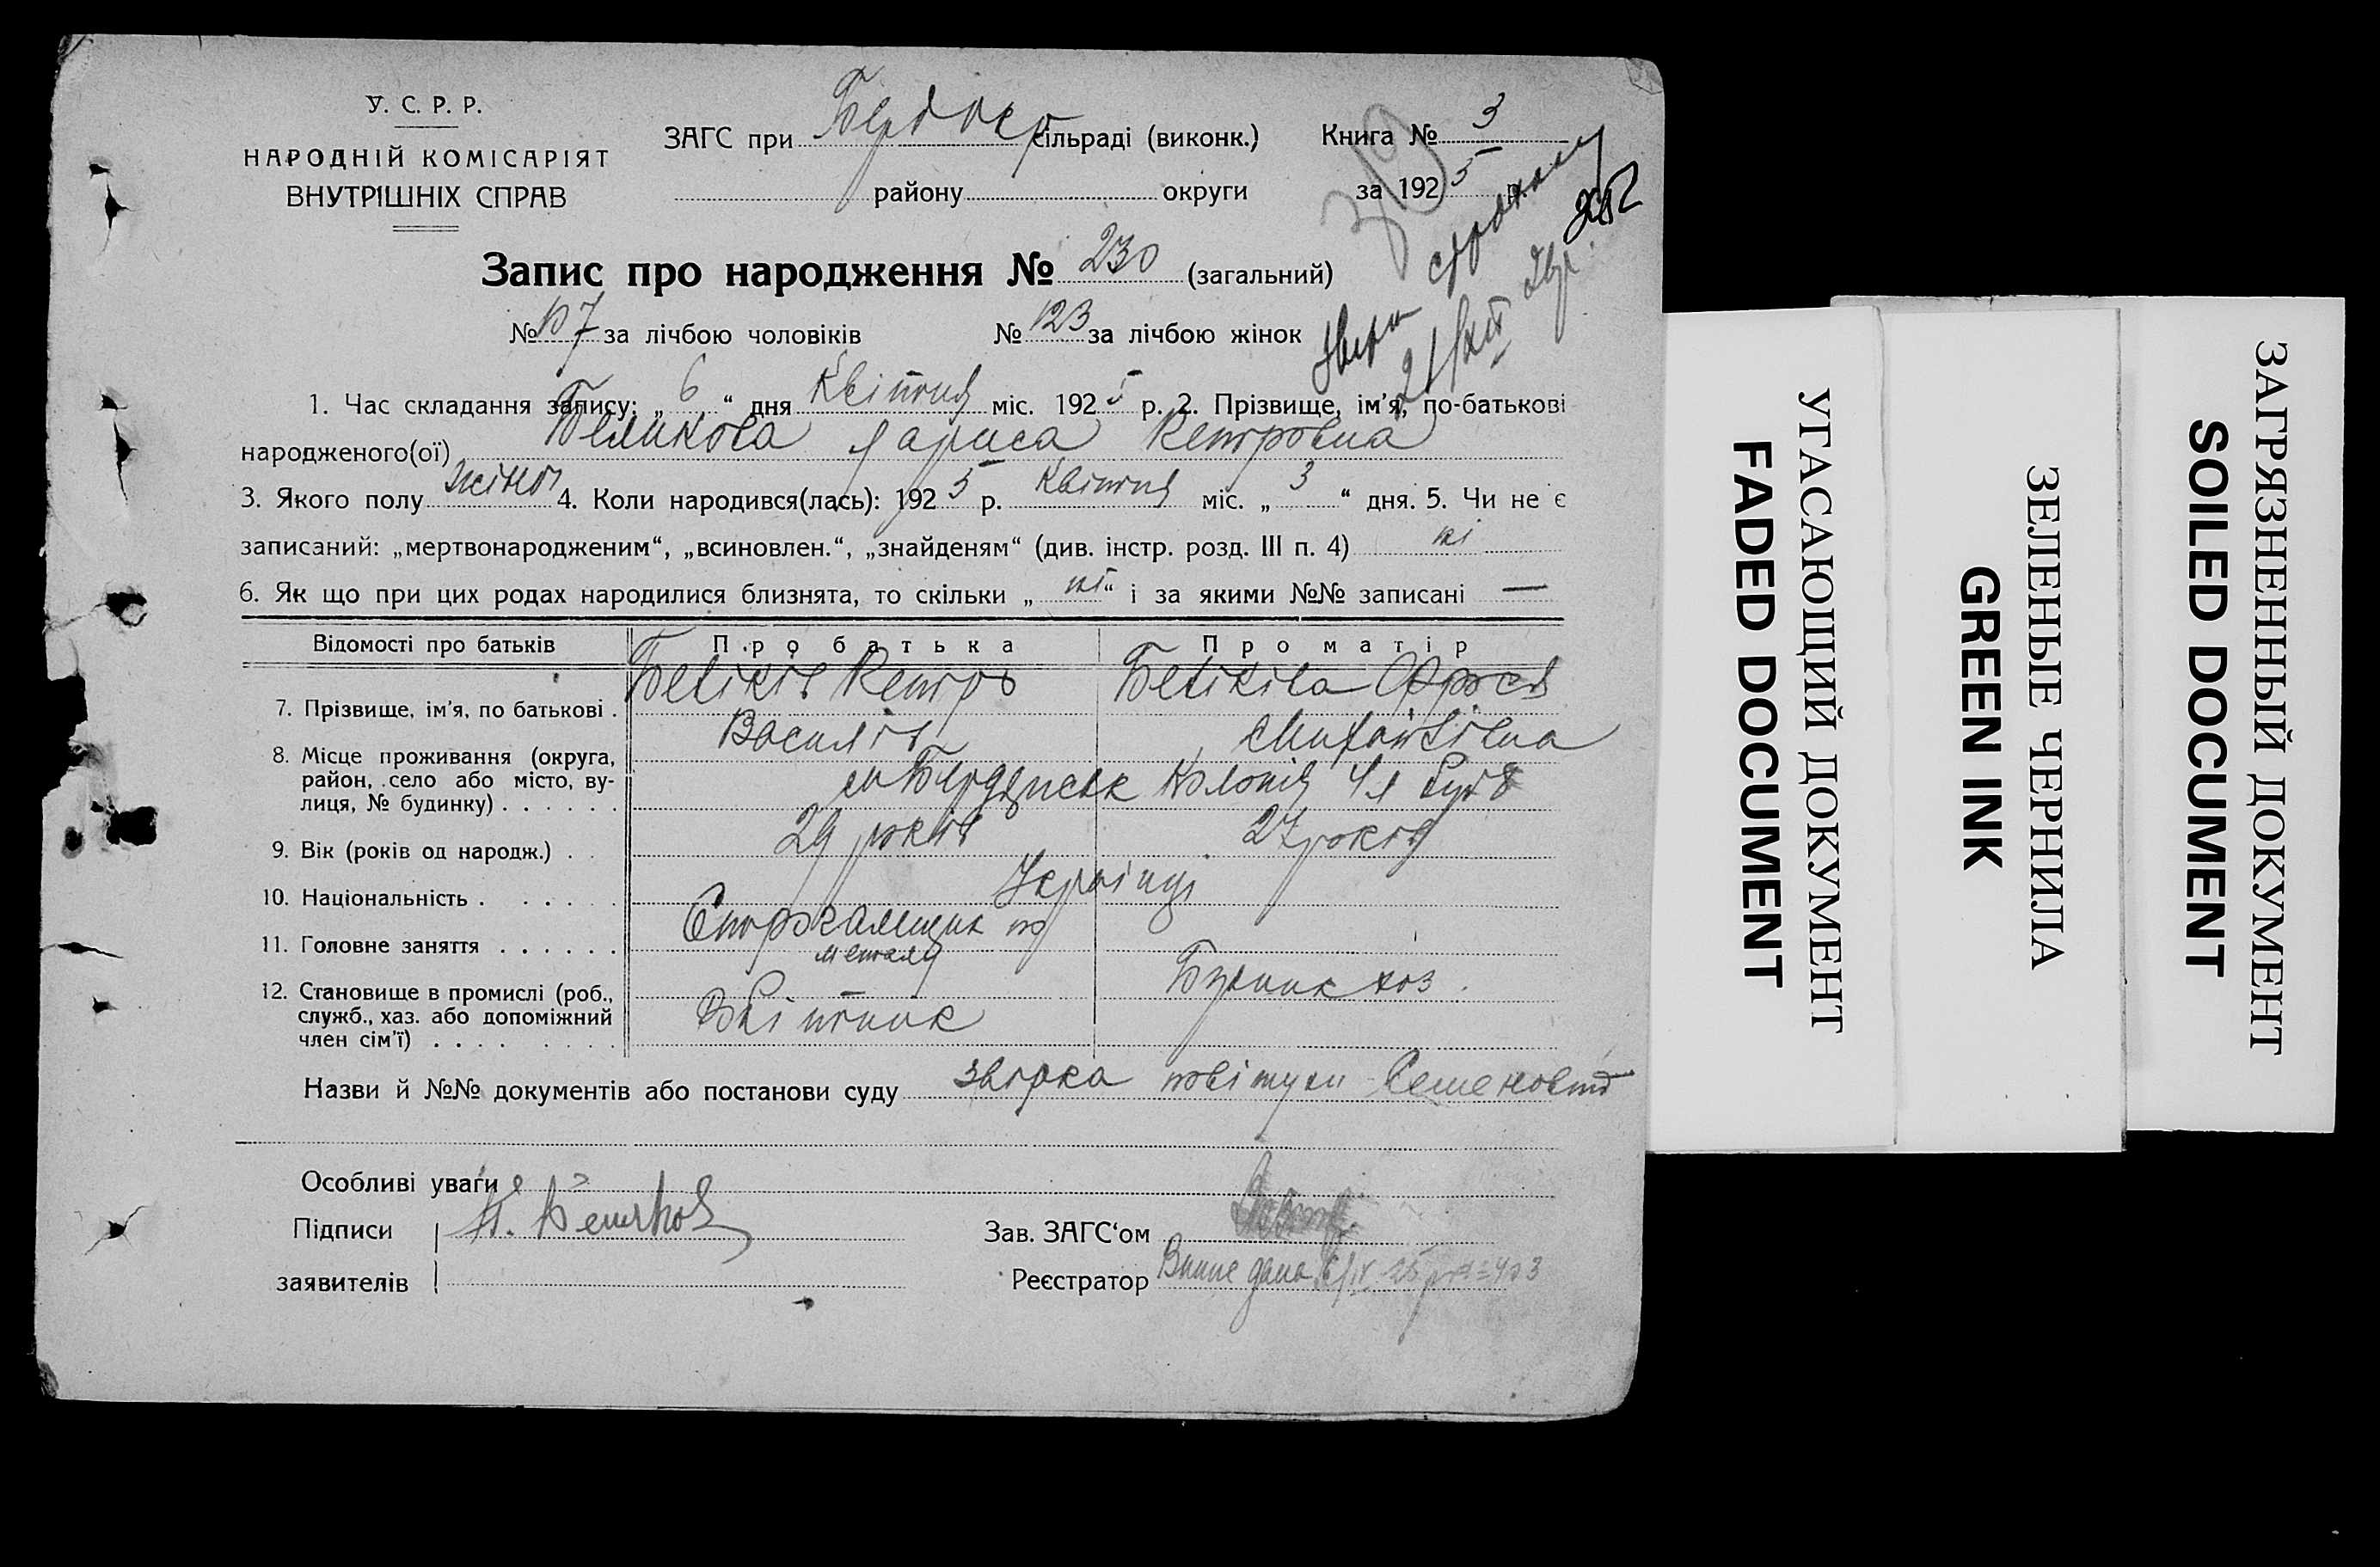 У. С. Р. Р.
НАРОДНІЙ КОМІСАРІЯТ
ВНУТРІШНІХ СПРАВ
ЗАГС при Бердокр сільраді (виконк.) Книга № 3
району округи за 1925 р.
39
Запис про народження № 230 (загальний)
№ 107 за лічбою чоловіків № 123 за лічбою жінок
21/XII
1. Час складання запису: „ 6 “ дня Квітня міс. 1925 р. 2. Прізвище, ім'я, по-батькові
народженого(ої) Беликова Лариса Петровна
3. Якого полу жіноч 4. Коли народився(лась): 1925 р. Квітня міс. „ 3 “ дня. 5. Чи не є
записаний: „мертвонародженим“, „всиновлен.“, „знайденям“ (див. інстр. розд. III п. 4) ні
6. Як що при цих родах народилися близнята, то скільки „ ні “ і за якими №№ записані —
Відомості про батьків Про батька Про матір
7. Прізвище, ім'я, по батькові . Беліків Петро Беліківа Фрося
Василів Михайлівна
8. Місце проживання (округа,
район, село або місто, вулиця, № будинку) . . . . . . м Бердянськ Колонія
9. Вік (років од народж.) . . 29 років 27 років
10. Національність . . . . . Українці
11. Головне заняття . . . . . . Строгальщик по
металу
12. Становище в промислі (роб.,
служб., хаз. або допоміжний
член сім'ї) . . . . . . . . Робітник
хоз.
Назви й №№ документів або постанови суду повітухи
Особливі уваги
Підписи П. Беликов Зав. ЗАГС'ом
заявителів Реєстратор дана 6/IV 25
УГАСАЮЩИЙ ДОКУМЕНТ
FADED DOCUMENT
ЗЕЛЕНЫЕ ЧЕРНИЛА
GREEN INK
ЗАГРЯЗНЕННЫЙ ДОКУМЕНТ
SOILED DOCUMENT